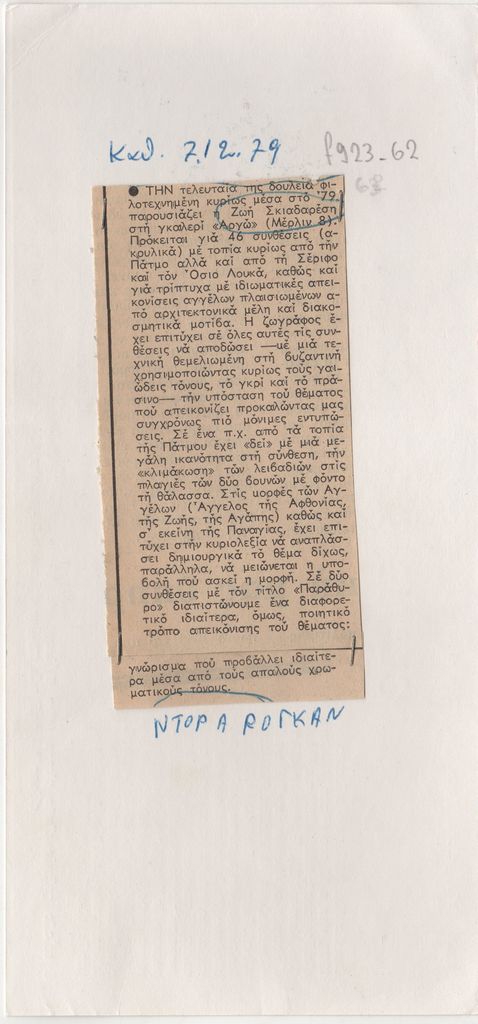 Καθ. 7.12.79 f923-62
63
● ΤΗΝ τελευταία της δουλειά φι-
λοτεχνημένη κυρίως μέσα στό '79,
παρουσιάζει ἡ Ζωή Σκιαδαρέση
στή γκαλερί «Αργώ» (Μέρλιν 8).
Πρόκειται γιά 46 συνθέσεις (α-
κρυλικά) μέ τοπία κυρίως από τήν
Πάτμο αλλά καί από τή Σέριφο
καί τόν Ὅσιο Λουκά, καθώς καί
γιά τρίπτυχα μέ ιδιωματικές απει-
κονίσεις αγγέλων πλαισιωμένων α-
πό αρχιτεκτονικά μέλη καί διακο-
σμητικά μοτίβα. Η ζωγράφος έ-
χει επιτύχει σέ όλες αυτές τίς συν-
θέσεις νά αποδώσει —μέ μιά τε-
χνική θεμελιωμένη στή βυζαντινή
χρησιμοποιώντας κυρίως τούς γαι-
ώδεις τόνους, τό γκρί καί τό πρά-
σινο— τήν υπόσταση τού θέματος
πού απεικονίζει προκαλώντας μας
συγχρόνως πιό μόνιμες εντυπώ-
σεις. Σέ ένα π.χ. από τά τοπία
τής Πάτμου έχει «δεί» μέ μιά με-
γάλη ικανότητα στή σύνθεση, τήν
«κλιμάκωση» τών λειβαδιών στίς
πλαγιές τών δύο βουνών μέ φόντο
τή θάλασσα. Στίς μορφές τών Αγ-
γέλων (Ἄγγελος τής Αφθονίας,
τής Ζωής, τής Αγάπης) καθώς καί
σ' εκείνη τής Παναγίας, έχει επι-
τύχει στήν κυριολεξία νά αναπλάσ-
σει δημιουργικά τό θέμα δίχως,
παράλληλα, νά μειώνεται η υπο-
βολή πού ασκεί η μορφή. Σέ δύο
συνθέσεις μέ τόν τίτλο «Παράθυ-
ρο» διαπιστώνουμε ένα διαφορε-
τικό ιδιαίτερα, όμως, ποιητικό
τρόπο απεικόνισης τού θέματος:
γνώρισμα πού προβάλλει ιδιαίτε-
ρα μέσα από τούς απαλούς χρω-
ματικούς τόνους.
ΝΤΟΡΑ ΡΟΓΚΑΝ